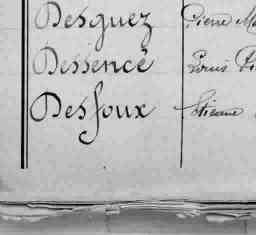 Desguez Pierre M
Dessencé Louis Fr
Desfoux Etienne